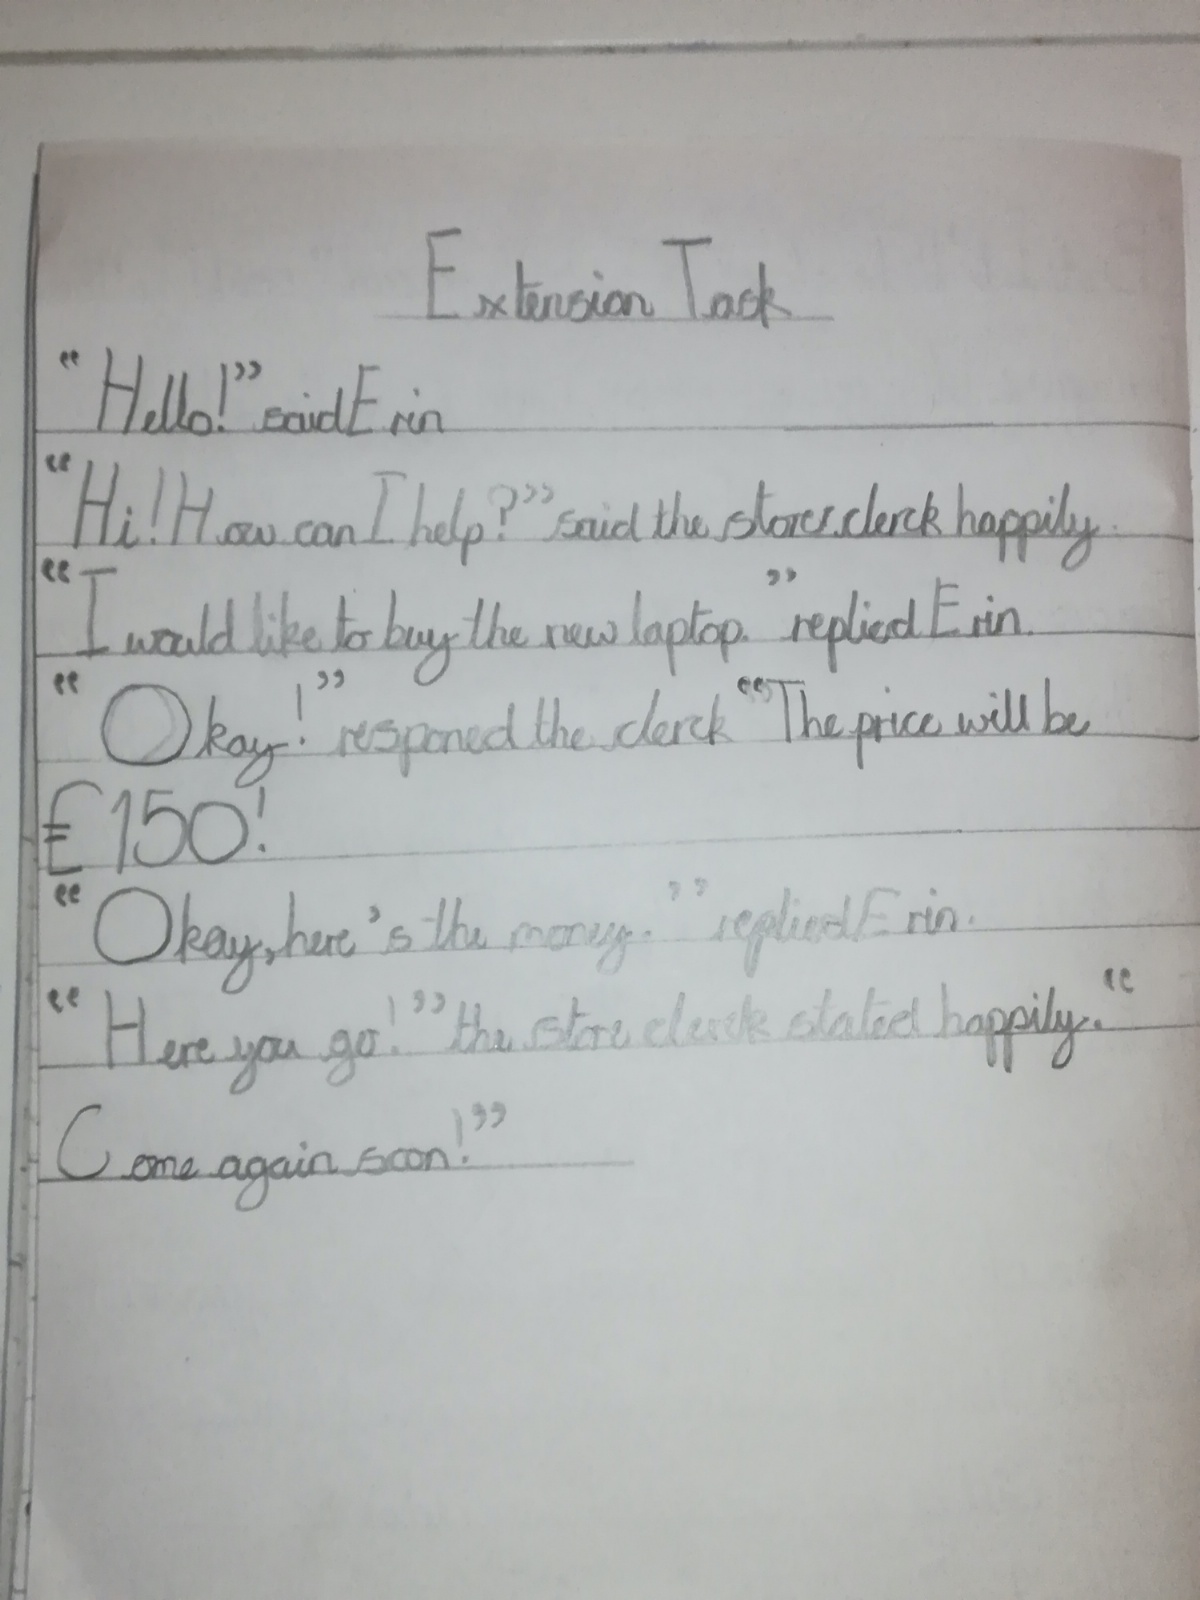 Extension Task
“Hello!” said Erin
“Hi! How can I help?” said the store clerck happily.
“I would like to buy the new laptop.” replied Erin.
“Okay!” responed the clerck “The price will be
€150!
“Okay, here’s the money.” replied Erin.
“Here you go!” the store clerck stated happily. “
Come again soon!”